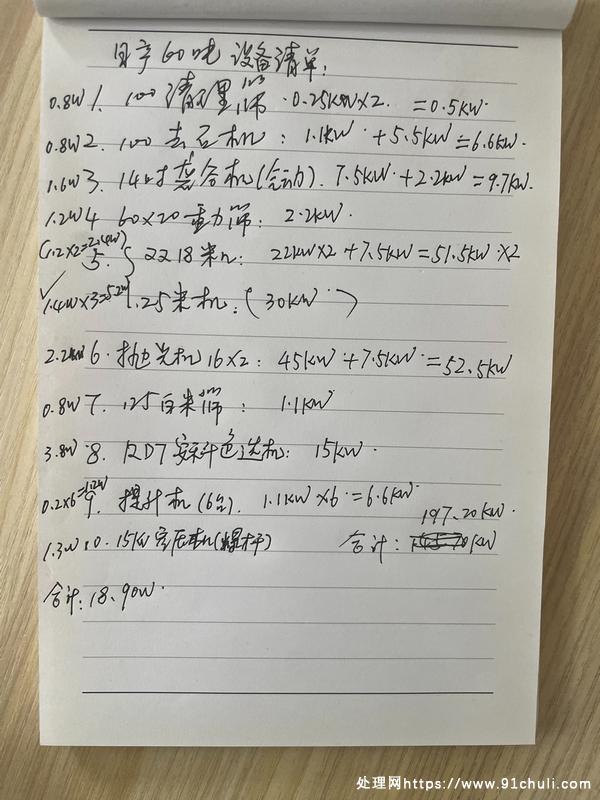 日产60吨设备清单:
0.8W 1. 100清理筛 0.25KW×2. =0.5KW.
0.8W 2. 100去石机: 1.1KW + 5.5KW=6.6KW.
1.6W 3. 14吋砻谷机(气动). 7.5KW+2.2KW=9.7KW.
1.2W 4 60×20重力筛: 2.2KW.
(1.2×2=2.4W) 5. { 2218米机: 22KW×2+7.5KW=51.5KW×2
✓1.4W×3=5.2W 1.25米机:(30KW)
2.2W 6. 抛光机16×2: 45KW+7.5KW=52.5KW
0.8W 7. 125白米筛: 1.1KW
3.8W 8. 色选机: 15KW.
0.2×6=1.2W 9. 提升机(6台). 1.1KW×6=6.6KW.
197.20KW.
1.3W 10. 15KW空压机(螺杆) 合计: KW
合计: 18.90W.
处理网https://www.91chuli.com